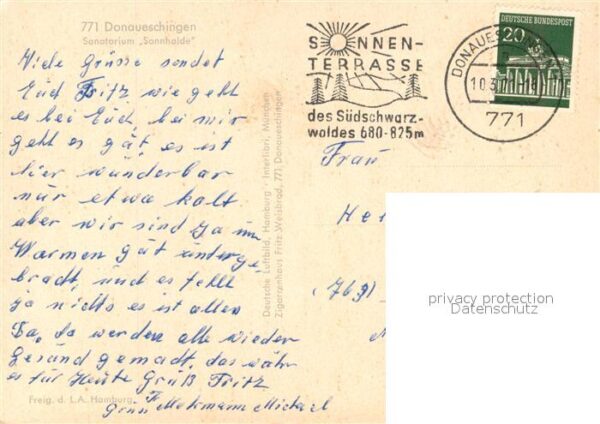 771 Donaueschingen
Sanatorium „Sonnhalde"
Viele Grüsse sendet
Eüch Fritz wie geht
es bei Eüch, bei mir
geht es gät, es ist
hier wunderbar
nur etwa kalt
aber wir sind ja im
Warmen gät ünterge-
bracht, und es fehlt
ja nichts es ist alles
Da, da werden alle wieder
Gesünd gemacht, das währ
es für Heute Grüß Fritz
Freig. d. L.A. Hamburg
Michael
Deutsche Luftbild, Hamburg · Interlibri, München
Zigarrenhaus Fritz Weisbrod, 771 Donaueschingen
SONNEN-
TERRASSE
des Südschwarz-
waldes 680-825m
DEUTSCHE BUNDESPOST
20
771
Frau
He
(7691
privacy protection
Datenschutz